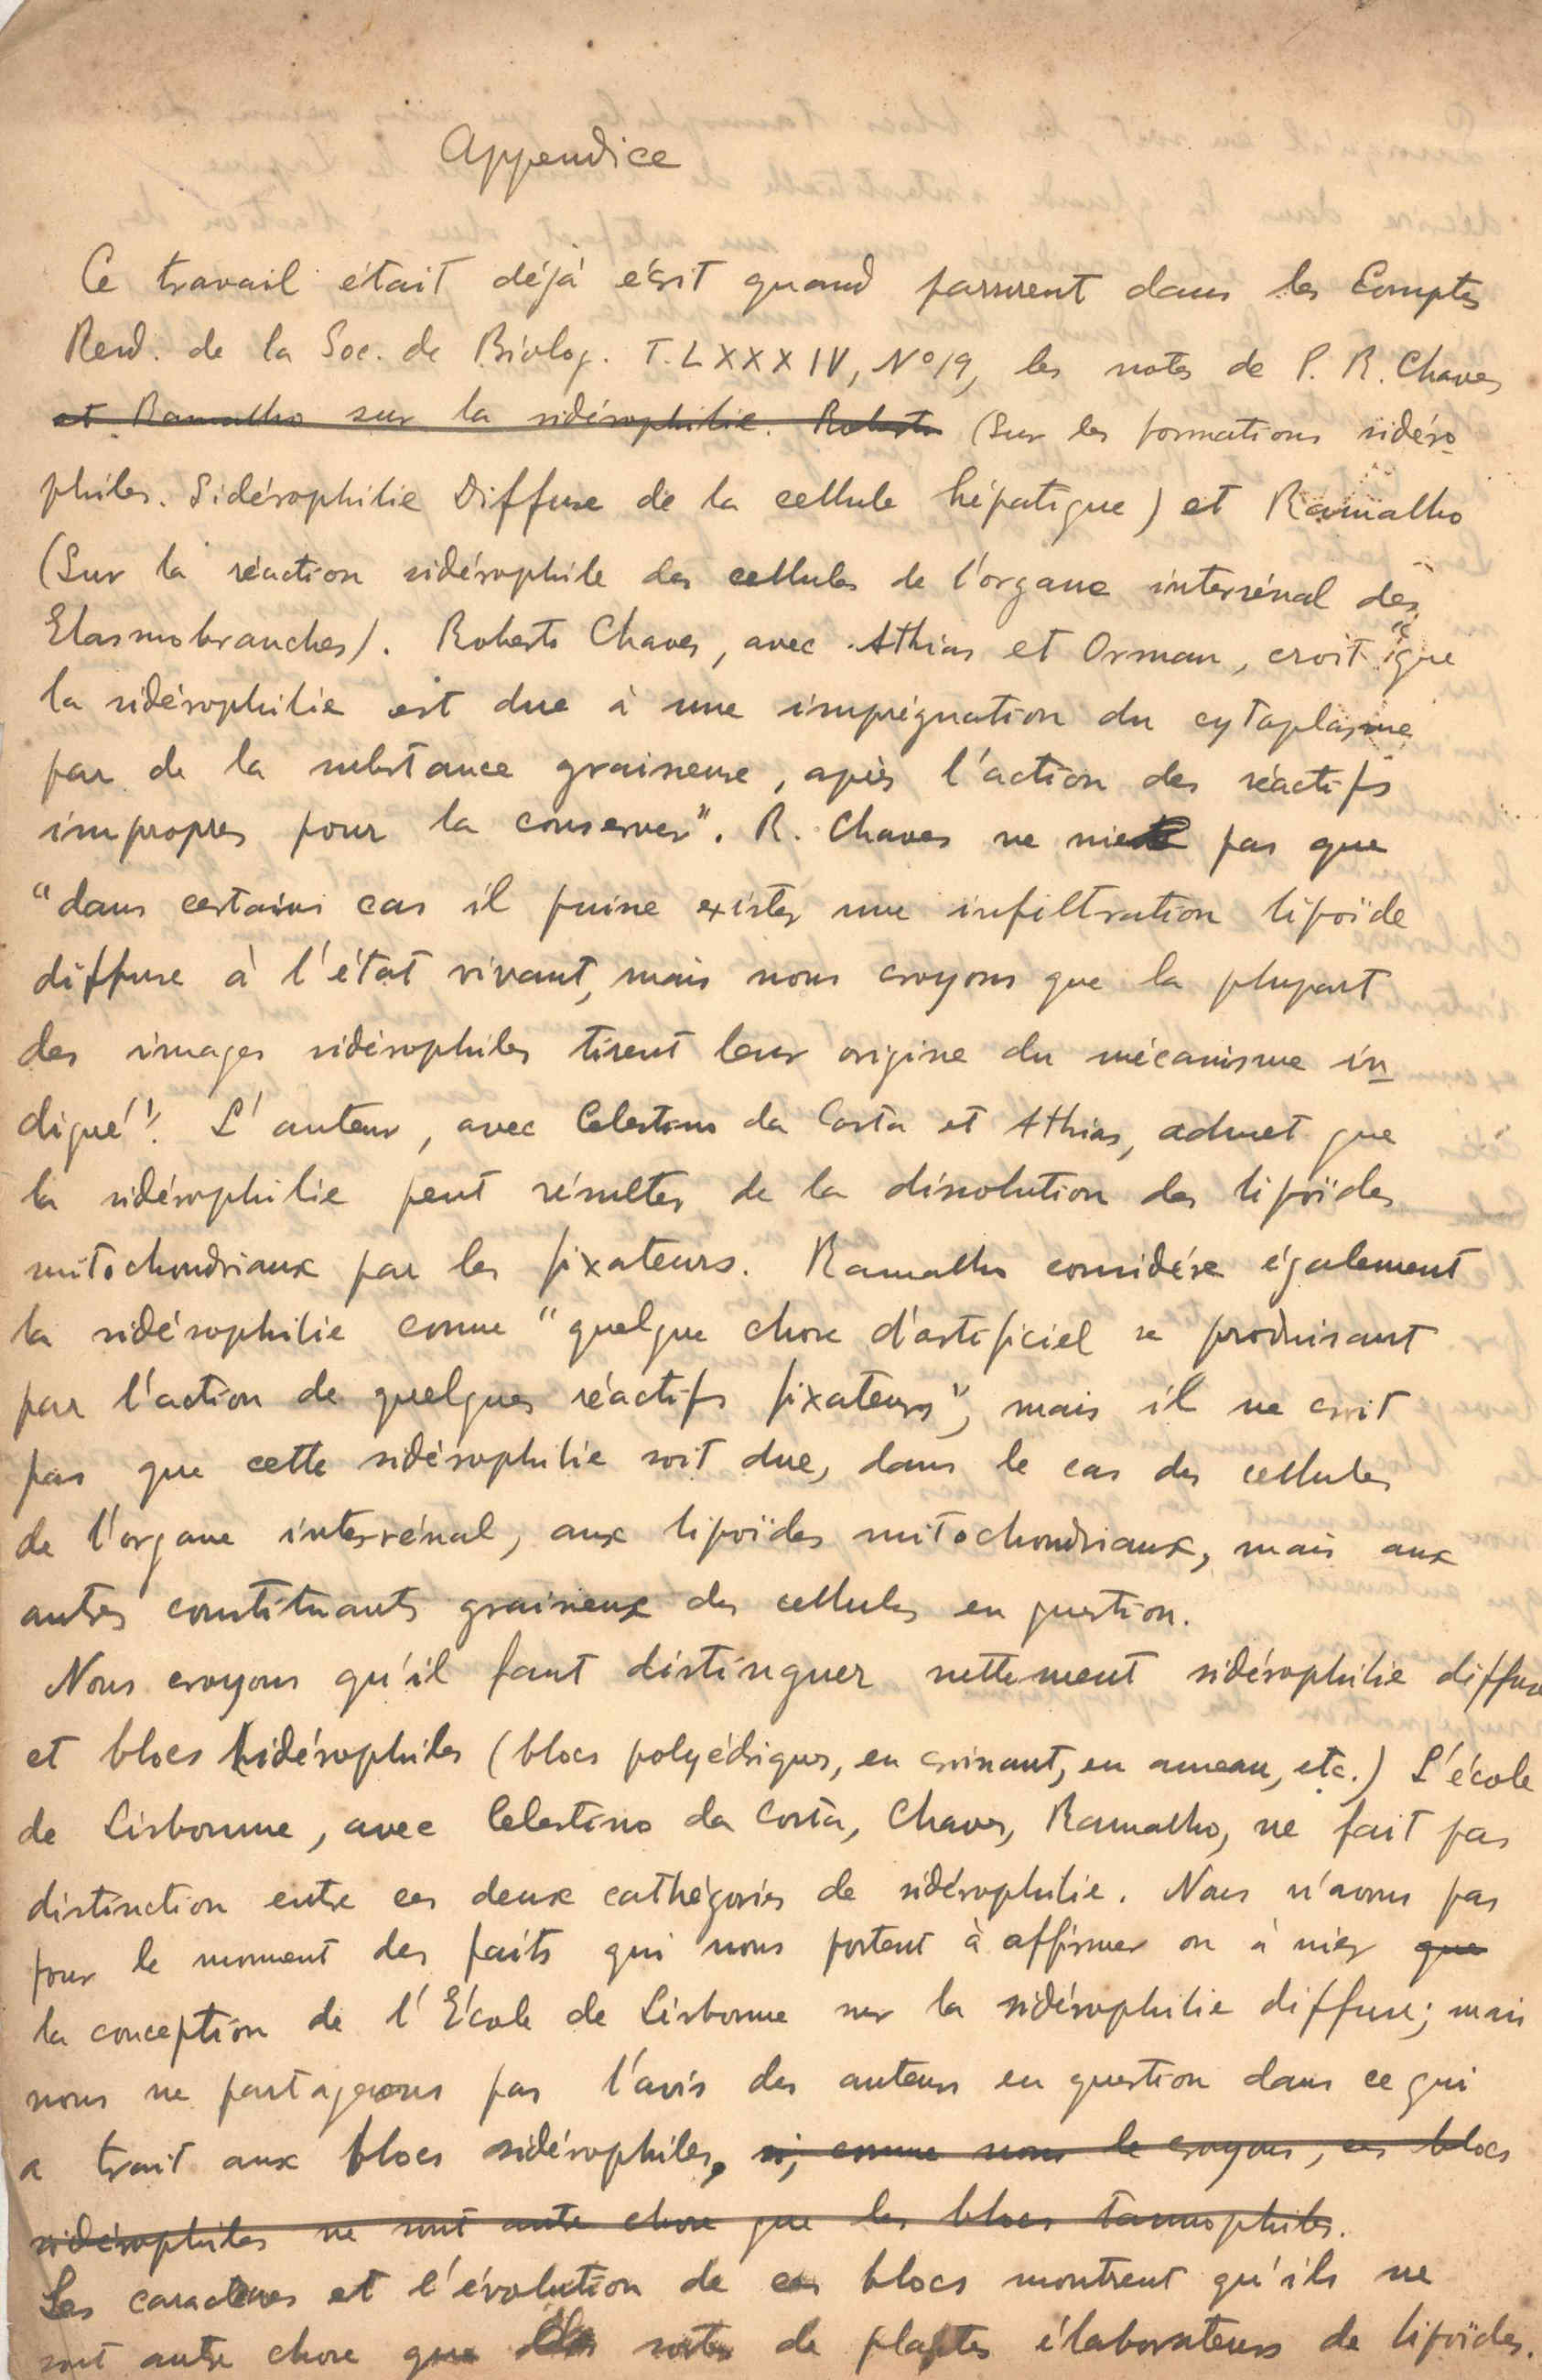 Appendice
Ce travail était déjà écrit quand parurent dans les Comptes
Rend. de la Soc. de Biolog. T. LXXXIV, Nº 19, les notes de P. R. Chaves
et Ramalho sur la sidérophilie. Roberto (Sur les formations sidéro
philes. Sidérophilie Diffuse de la cellule hépatique) et Ramalho
(Sur la réaction sidérophile des cellules de l'organe interrénal des
Elasmobranches). Roberto Chaves, avec Athias et Orman, croit "que
la sidérophilie est due à une imprégnation du cytoplasme
par de la substance graisseuse, après l'action des réactifs
impropres pour la conserver". R. Chaves ne nie pas que
"dans certains cas il puisse exister une infiltration lipoïde
diffuse à l'état vivant, mais nous croyons que la plupart
des images sidérophiles tirent leur origine du mécanisme in
diqué". L'auteur, avec Celestino da Costa et Athias, admet que
la sidérophilie peut résulter de la dissolution des lipoïdes
mitochondriaux par les fixateurs. Ramalho considére également
la sidérophilie comme "quelque chose d'artificiel se produisant
par l'action de quelques réactifs fixateurs", mais il ne croit
pas que cette sidérophilie soit due, dans le cas des cellules
de l'organe interrénal, aux lipoïdes mitochondriaux, mais aux
autres constituants graisseux des cellules en question.
Nous croyons qu'il faut distinguer nettement sidérophilie diffuse
et blocs sidérophiles (blocs polyédriques, en croissant, en anneau, etc.) L'école
de Lisbonne, avec Celestino da Costa, Chaves, Ramalho, ne fait pas
distinction entre ces deux cathégories de sidérophilie. Nous n'avons pas
pour le moment des faits qui nous portent à affirmer ou à nier que
la conception de l'École de Lisbonne sur la sidérophilie diffuse; mais
nous ne partageons pas l'avis des auteurs en question dans ce qui
a trait aux blocs sidérophiles. si, comme nous le croyons, ces blocs
sidérophiles ne sont autre chose que les blocs tannophiles.
Les caractères et l'évolution de ces blocs montrent qu'ils ne
sont autre chose que des sortes de plastes élaborateurs de lipoïdes.